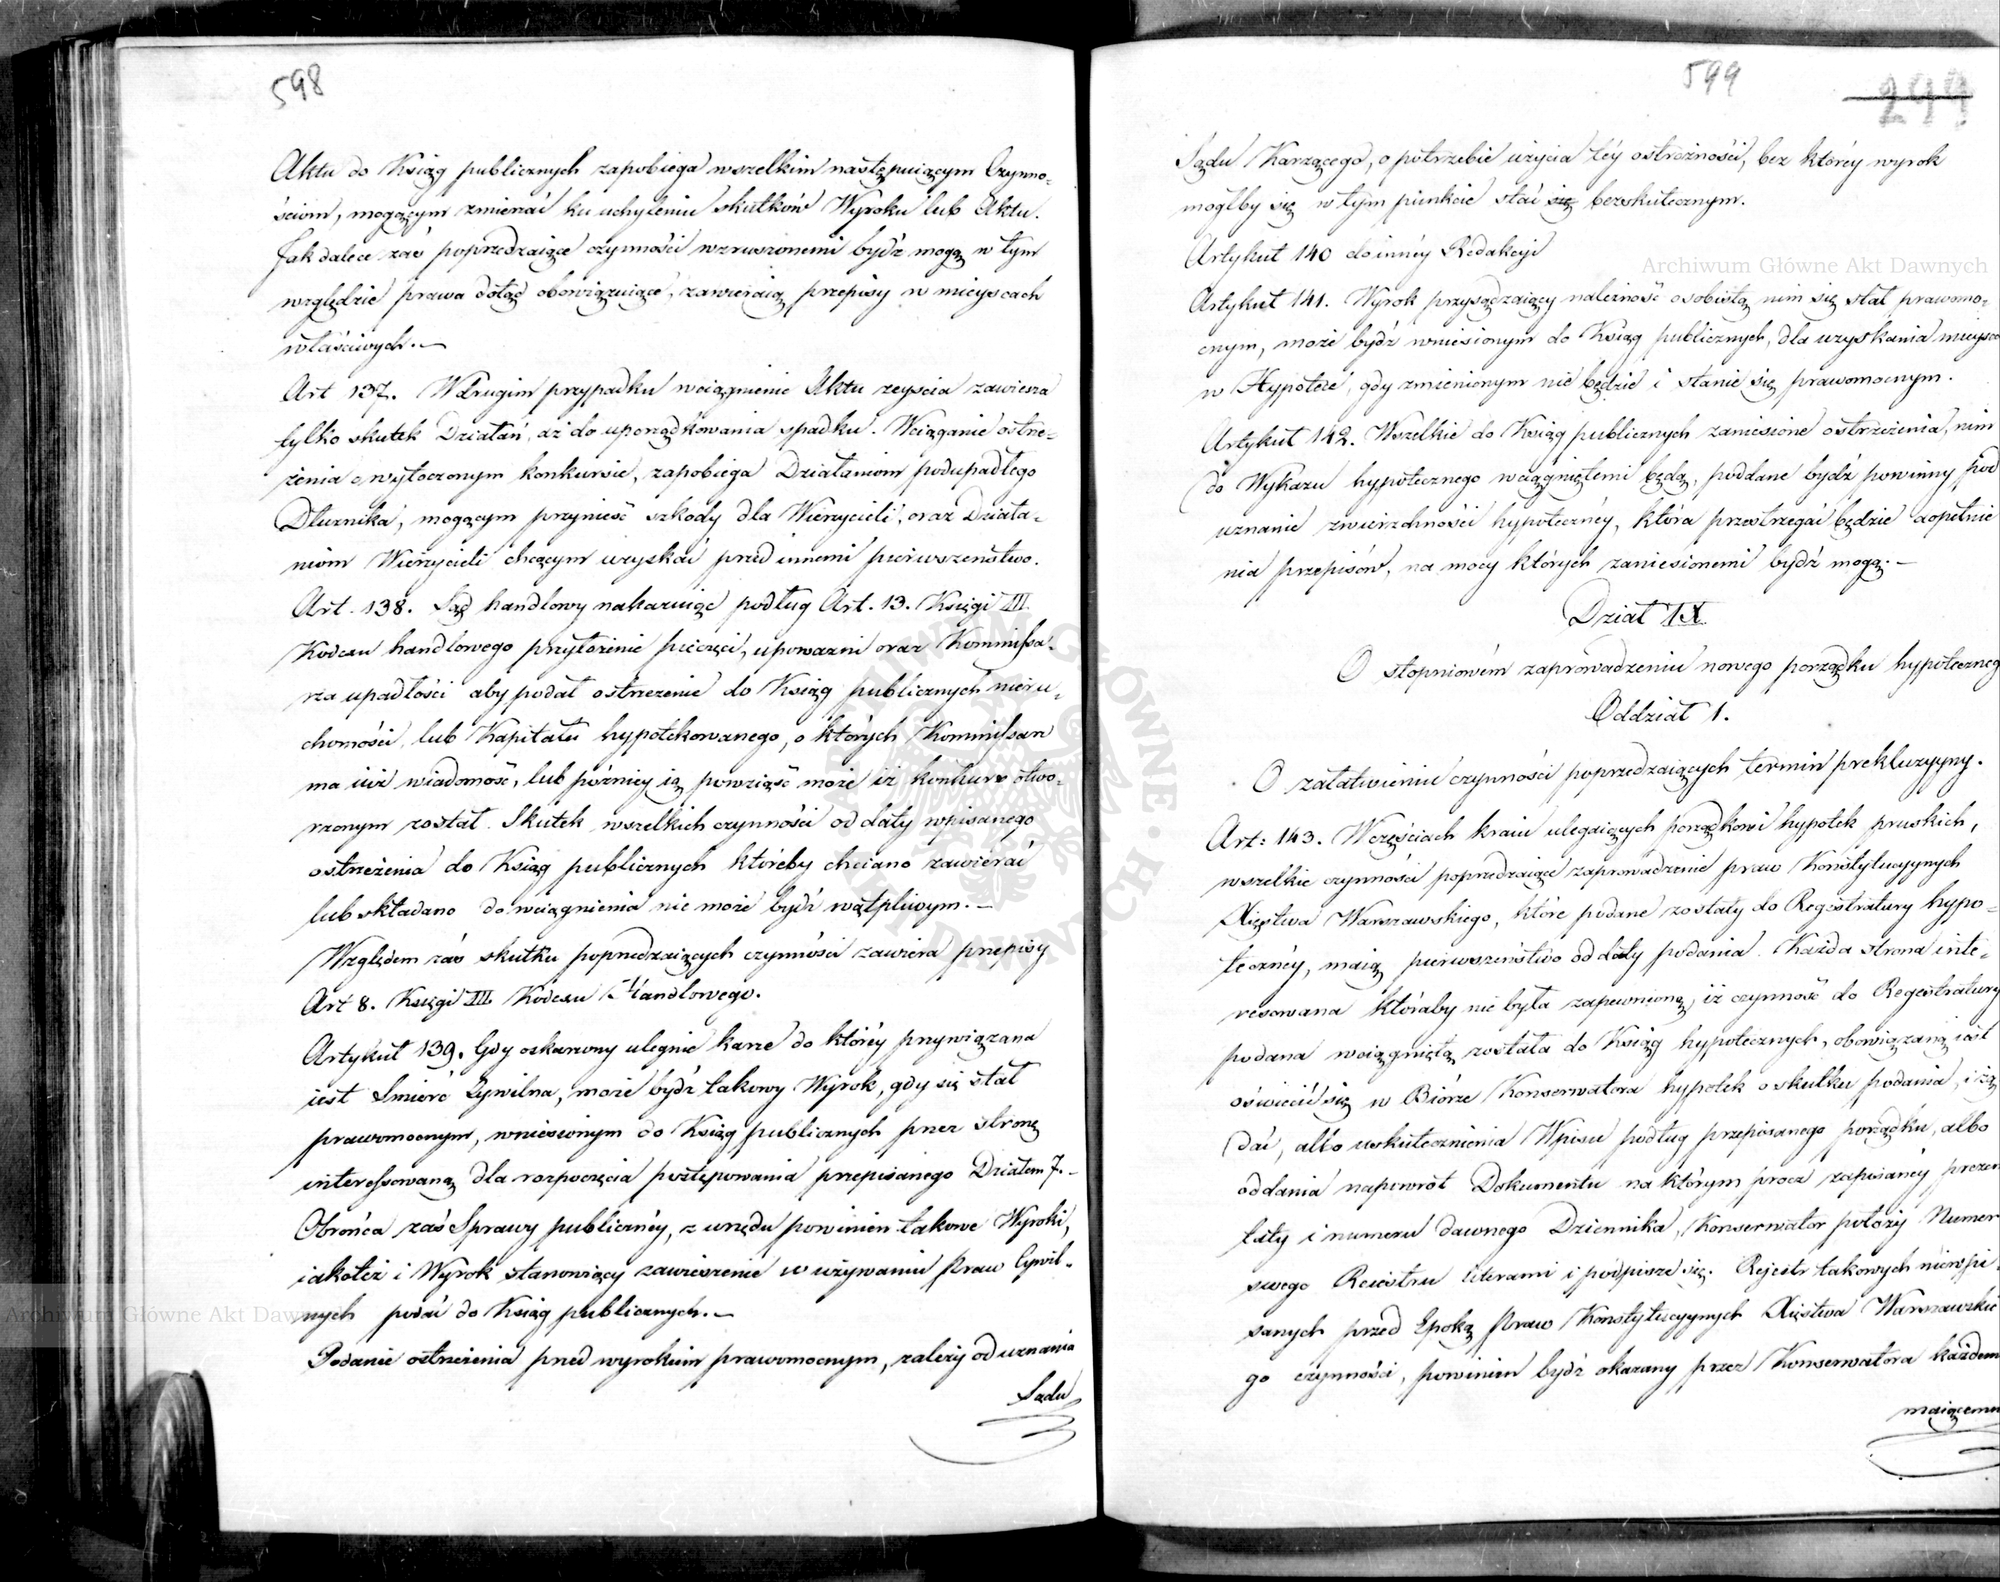 598
Aktu do Ksiąg publicznych zapobiega wszelkim następuiącym Czynno-
ściom, mogącym zmierzać ku uchyleniu skutków Wyroku lub Aktu.
Jak dalece zaś poprzedzaiące czynności wzruszonemi bydź mogą w tym
względzie prawa dotąd obowiązuiące, zawieraią przepisy w mieyscach
właściwych.—
Art 137. W drugim przypadku wciągnienie Aktu zeyścia zawiesza
tylko skutek Działań, aż do uporządkowania spadku. Wciąganie ostrze-
żenia o wytoczonym konkursie, zapobiega Działaniom podupadłego
Dłużnika, mogącym przynieść szkody dla Wierzycieli, oraz Działa-
niom Wierzycieli chcącym uzyskać przed innemi pierwszeństwo.
Art. 138. Sąd handlowy nakazuiąc podług Art. 13. Księgi III.
Kodexu handlowego przyłożenie pieczęci, upoważni oraz Kommissa-
rza upadłości aby podał ostrzeżenie do Ksiąg publicznych nieru-
chomości, lub Kapitału hypotekowanego, o których Kommissarz
ma iuż wiadomość, lub późniey ią powziąść może iż konkurs otwo-
rzonym został. Skutek wszelkich czynności od daty wpisanego
ostrzeżenia do Ksiąg publicznych któreby chciano zawierać
lub składano do wciągnienia nie może bydź wątpliwym.—
Względem zaś skutku poprzedzaiących czynności zawiera przepisy
Art 8. Księgi III. Kodexu Handlowego.
Artykuł 139. Gdy oskarżony ulegnie karze do któréy przywiązana
iest Smierć Cywilna, może bydź takowy Wyrok, gdy się stał
prawomocnym, wniesionym do Ksiąg publicznych przez stronę
interessowaną dla rozpoczęcia postępowania przepisanego Działem 7.-
Obrońca zaś Sprawy publicznéy, z urzędu powinien takowe Wyroki,
iakoteż i Wyrok stanowiący zawieszenie w używaniu Praw Cywil-
nych podać do Ksiąg publicznych.—
Podanie ostrzeżenia przed wyrokiem prawomocnym, zależy od uznania
Sądu
599
299
Sądu Karzącego, o potrzebie użycia téy ostrożności, bez któréy wyrok
mógłby się w tym punkcie stać się bezskutecznym.
Artykuł 140 do innéy Redakcyi
Artykuł 141. Wyrok przysądzaiący należność osobistą nim się stał prawomo-
cnym, może bydź wniesionym do Ksiąg publicznych, dla uzyskania mieysca
w Hypotece, gdy zmienionym nie będzie i stanie się prawomocnym.
Artykuł 142. Wszelkie do Ksiąg publicznych zaniesione ostrzeżenia, nim
do Wykazu hypotecznego wciągniętemi będą, poddane bydź powinny pod
uznanie zwierzchności hypotecznéy, która przestrzegać będzie dopełnie
nia przepisów, na mocy których zaniesionemi bydź mogą.—
Dział IX.
O stopniowém zaprowadzeniu nowego porządku hypoteczneg
Oddział 1.
O załatwieniu czynności poprzedzaiących termin prekluzyyny.
Art: 143. W częściach kraiu ulegaiących porządkowi hypotek pruskich,
wszelkie czynności poprzedzaiące zaprowadzenie praw Konstytucyynych
Xięstwa Warszawskiego, które podane zostały do Regestratury hypo-
tecznéy, maią pierwszeństwo od daty podania. Każda strona inte-
resowana któraby nie była zapewnioną, iż czynność do Regestratury
podana wciągniętą została do Ksiąg hypotecznych, obowiązaną iest
oświecić się w Biórze Konserwatora hypotek o skutku podania, i żą
dać, albo uskutecznienia Wpisu podług przepisanego porządku, albo
oddania napowrót Dokumentu na którym prócz zapisanéy prezen
taty i numeru dawnego Dziennika, Konserwator położy Numer
swego Reiestru literami i podpisze się. Rejestr takowych niewpi
sanych przed Epoką Praw Konstytucyynych Xięstwa Warszawskie
go czynności, powinien bydź okazany przez Konserwatora każdem
maiącemu
Archiwum Główne Akt Dawnych
Archiwum Główne Akt Daw
ARCHIWUM GŁÓWNE AKT DAWNYCH